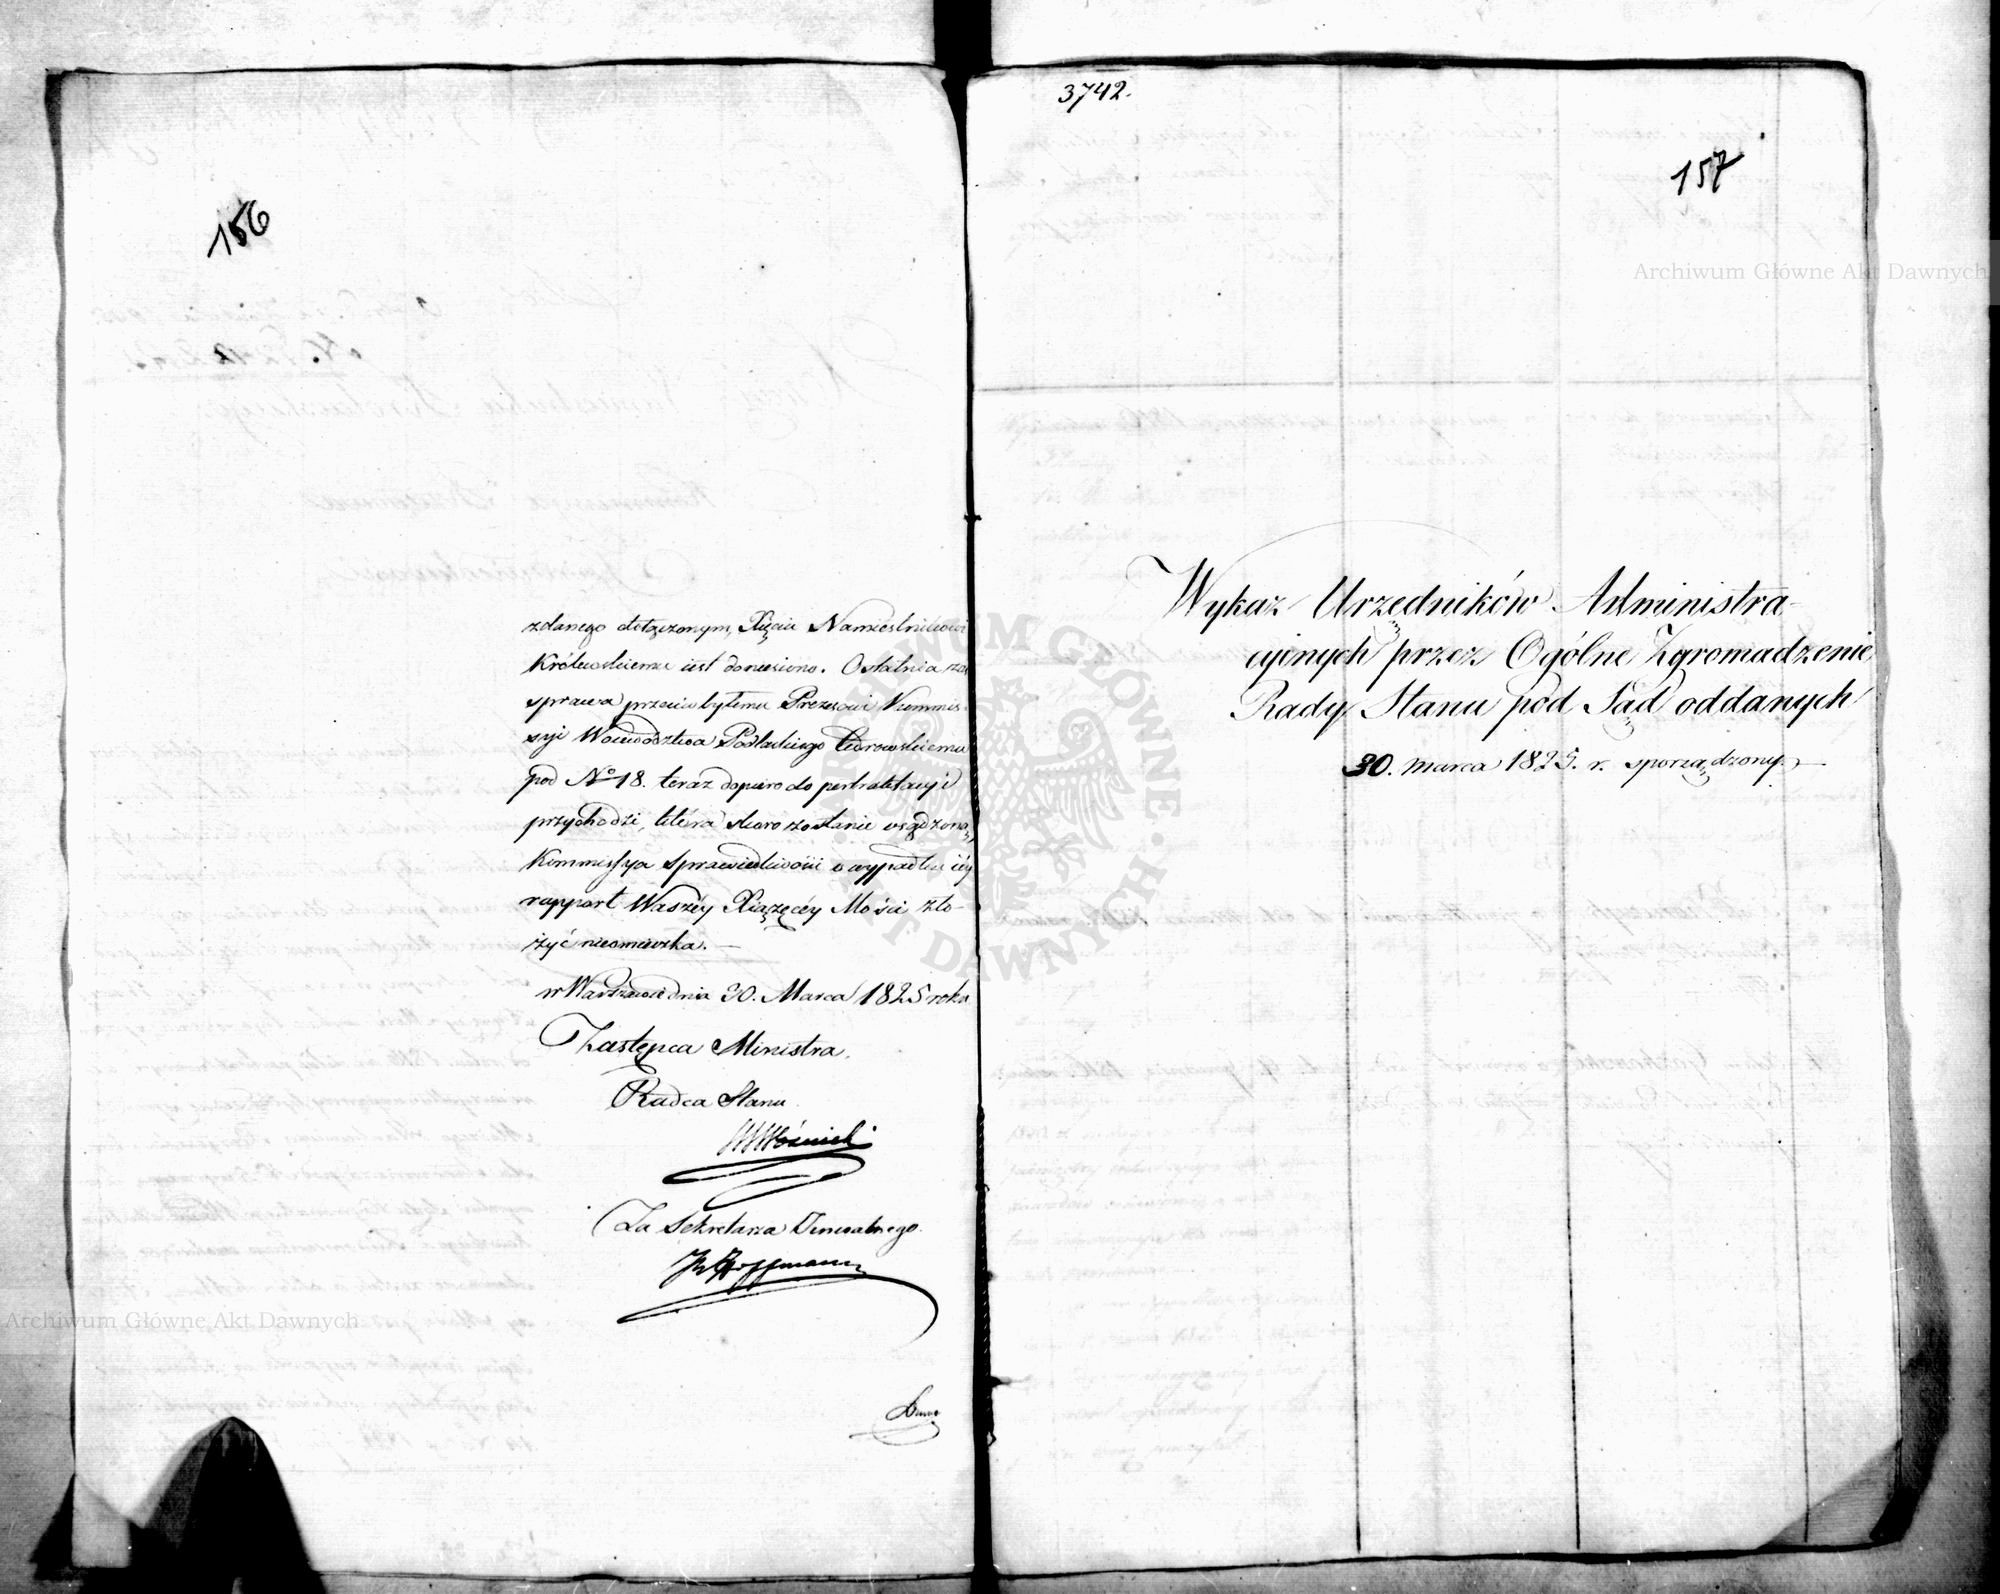 156
zdanego dołączonym, Xięciu Namiestnikowi
Królewskiemu iest doniesiono. Ostatnia zaś
sprawa przeciw byłemu Prezesowi Kommis-
syi Woiewództwa Podlaskiego
pod No 18. teraz dopiero do pertraktacyi
przychodzi, która skoro zostanie osądzoną,
Kommissya Sprawiedliwości o wypadku iéy
rapport Waszéy Xiążęcéy Mości zło-
żyć nieomieszka.
w Warszawie dnia 30. Marca 1825 roku
Zastępca Ministra.
Radca Stanu
Woźnicki
Za Sekretarza Generalnego.
Hoffmann
3742.
157
Wykaz Urzędników Administra-
cyinych przez Ogólne Zgromadzenie
Rady Stanu pod Sąd oddanych
30. marca 1825. r. sporządzony.
Archiwum Główne Akt Dawnych
Archiwum Główne Akt Dawnych
ARCHIWUM GŁÓWNE · AKT DAWNYCH ·